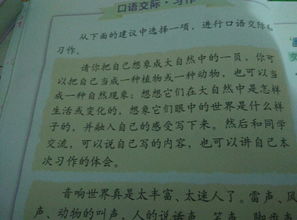 口语交际·习作
从下面的建议中选择一项，进行口语交际和
习作。
请你把自己想象成大自然中的一员，你可
以把自己当成一种植物或一种动物，也可以当
成一种自然现象；想想它们在大自然中是怎样
生活或变化的，想象它们眼中的世界是什么样
子的，并融入自己的感受写下来。然后和同学
交流，可以说自己写的内容，也可以讲自己本
次习作的体会。
音响世界真是太丰富、太迷人了。雷声、风
声、动物的叫声、人的说话声、笑声、